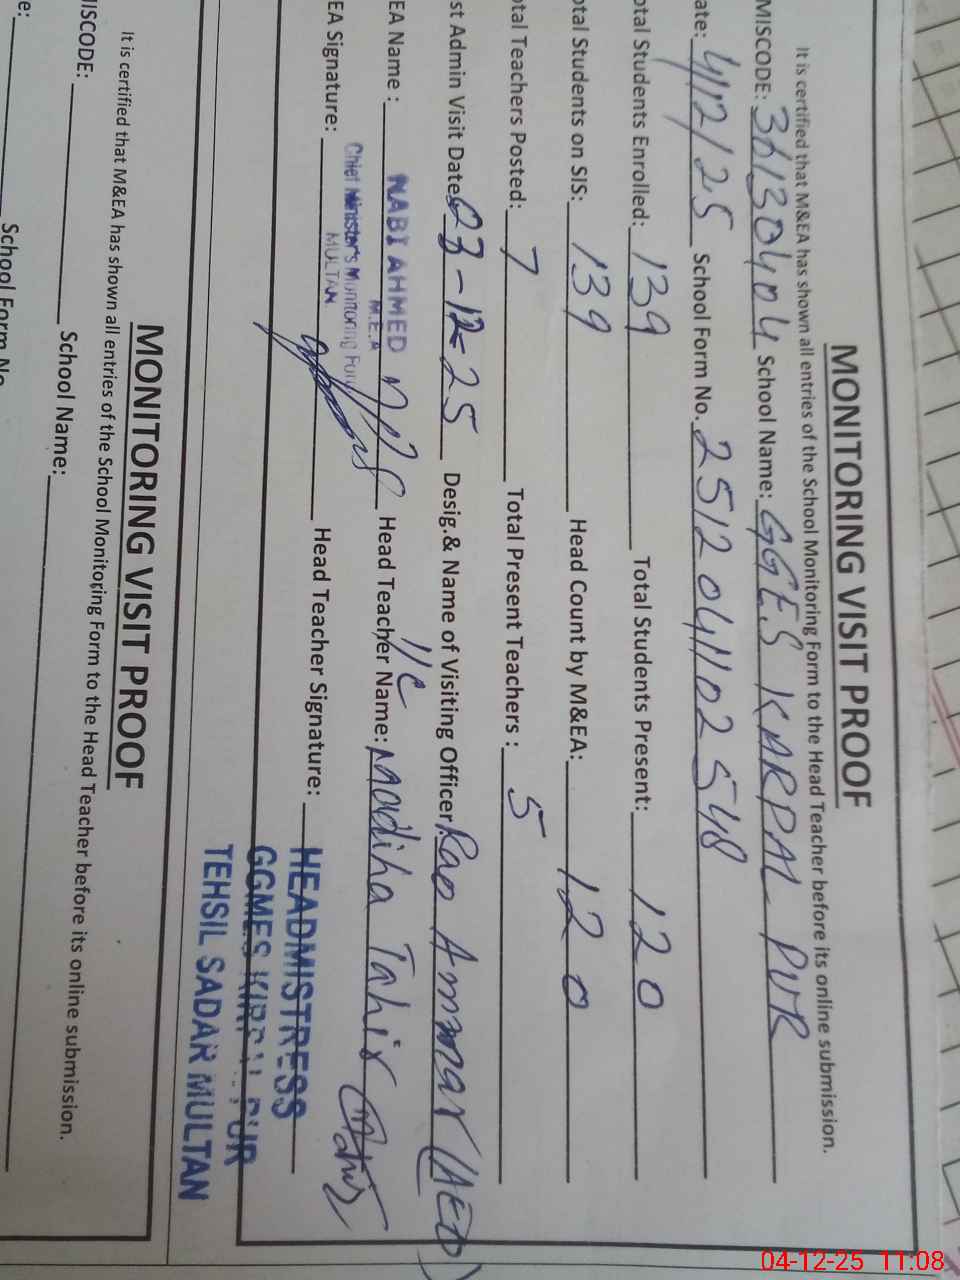 MONITORING VISIT PROOF
It is certified that M&EA has shown all entries of the School Monitoring Form to the Head Teacher before its online submission.
MISCODE: 36130404 School Name: GGES KARPAL PUR
ate: 4/12/25 School Form No. 2512041102548
otal Students Enrolled: 139 Total Students Present: 120
otal Students on SIS: 139 Head Count by M&EA: 120
otal Teachers Posted: 7 Total Present Teachers : 5
st Admin Visit Date 03-12-25 Desig.& Name of Visiting Officer: Rao Ammar (AEO)
EA Name : NABI AHMED Head Teacher Name: I/C Madiha Tahir
M.E.A
Chief Minister's Monitoring For
MULTAN
EA Signature: Head Teacher Signature:
HEADMISTRESS
GGMES KIRPAL PUR
TEHSIL SADAR MULTAN
MONITORING VISIT PROOF
It is certified that M&EA has shown all entries of the School Monitoring Form to the Head Teacher before its online submission.
IISCODE: School Name:
e: School Form No.
04-12-25 11:08